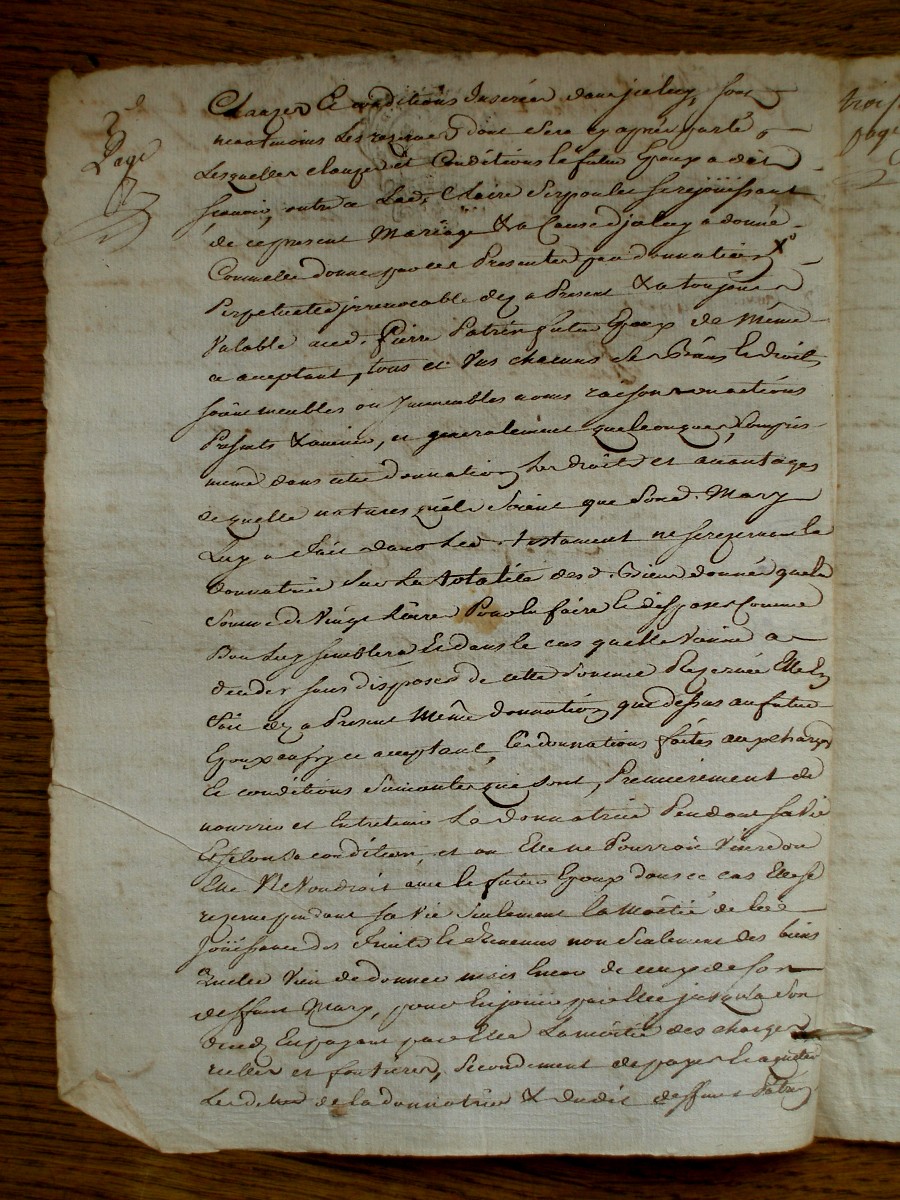 2e
Page
Charges et conditions Inserées dans jceluy, sous
neantmoins les reserves dont sera cy après parlé,
Lesquelles clauses et Conditions le futur Epoux a dit
scavoir, outre ce Lad. Claire Serpoulet se rejöüissant
de ce present Mariäge & a Cause d'jceluy a donné
Comme elle donne par ces Presentes par donnation X
Perpetuelle jrrevocable dez a Present & a toujours
Valable aud. Pierre Patrin futur Epoux de Même
ce acceptant, tous et Uns chacuns ses Biens les droits
soint meubles ou Jmmeubles noms raisons ou actions
Presents & avenir, et generalement quelconques, Compris
meme dans cette donnation les droits et avantages
de quelle natures quels Soient que Sond. Mary
Luy a fait dans Led. testament ne se reservant la
donnatrice sur La totalité desd. Biens donnés que la
Somme de Vingt Livres Pour en faire et disposer Comme
Bon Luy semblera Et dans le cas quelle Vienne a
deceder sans disposer de cette Somme Reservée Elle En
fait dez a Present Même donnation que dessus au futur
Epoux aussy ce acceptant, Ces donnations faites aux charges
Et conditions Suivantes qui sont, Premierement de
nourrir et Entretenir La donnatrice Pendant sa Vie
Et selon Sa condition, et ou Elle ne Pourroit Vivre ou
Elle Ne Voudroit avec le futur Epoux dans ce cas Elle se
reserve pendant sa Vie Seulement la Moitié de les
Joüissance des Fruits et Revenus non Seulement des biens
quelle Vien de donner mais Encor de ceux de son
deffunt Mary, pour En jouir par elle jusqu'a Son
decedz En payant par elle La moitié des charges
réelles et foncieres, Secondement de payer et acquiter
Les dettes de la donnatrice & dudit deffunt Patrin
trois
page